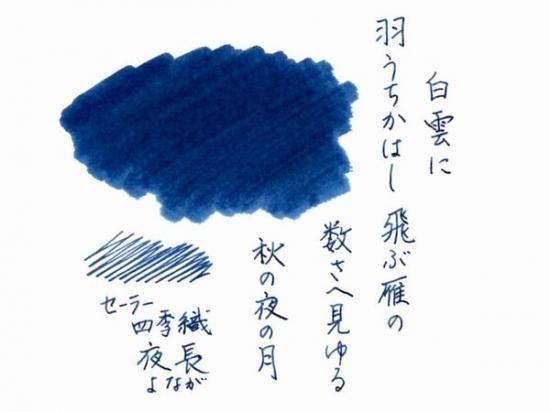 白雲に
羽うちかはし 飛ぶ雁の
数さへ見ゆる
秋の夜の月
セーラー
四季織
夜長
よなが